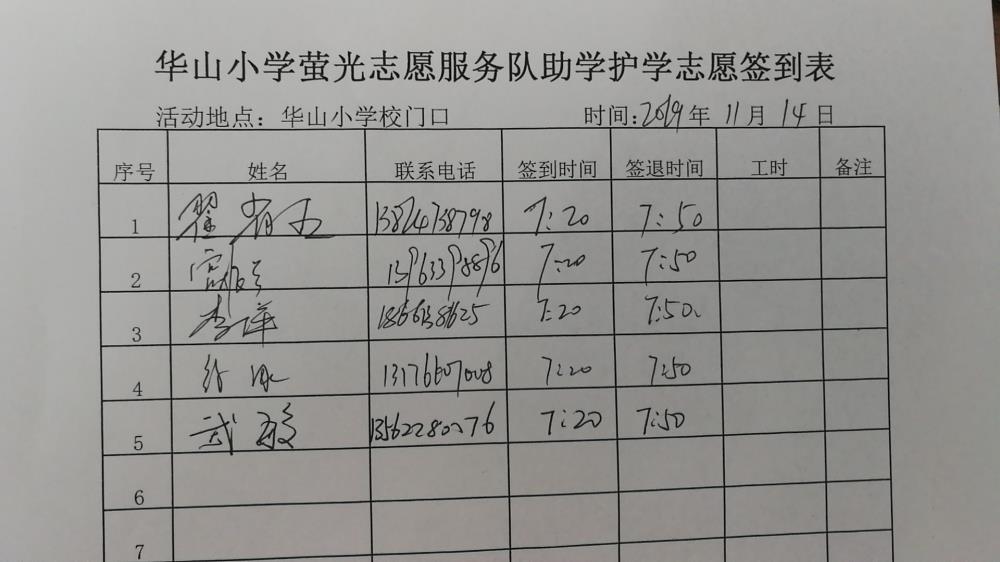 华山小学萤光志愿服务队助学护学志愿签到表
活动地点：华山小学校门口 时间:2019年 11月 14日
序号 姓名 联系电话 签到时间 签退时间 工时 备注
1 7:20 7:50
2 7:20 7:50
3 李萍 7:20 7:50
4 13176607008 7:20 7:50
5 武敏 13562280076 7:20 7:50
6
7